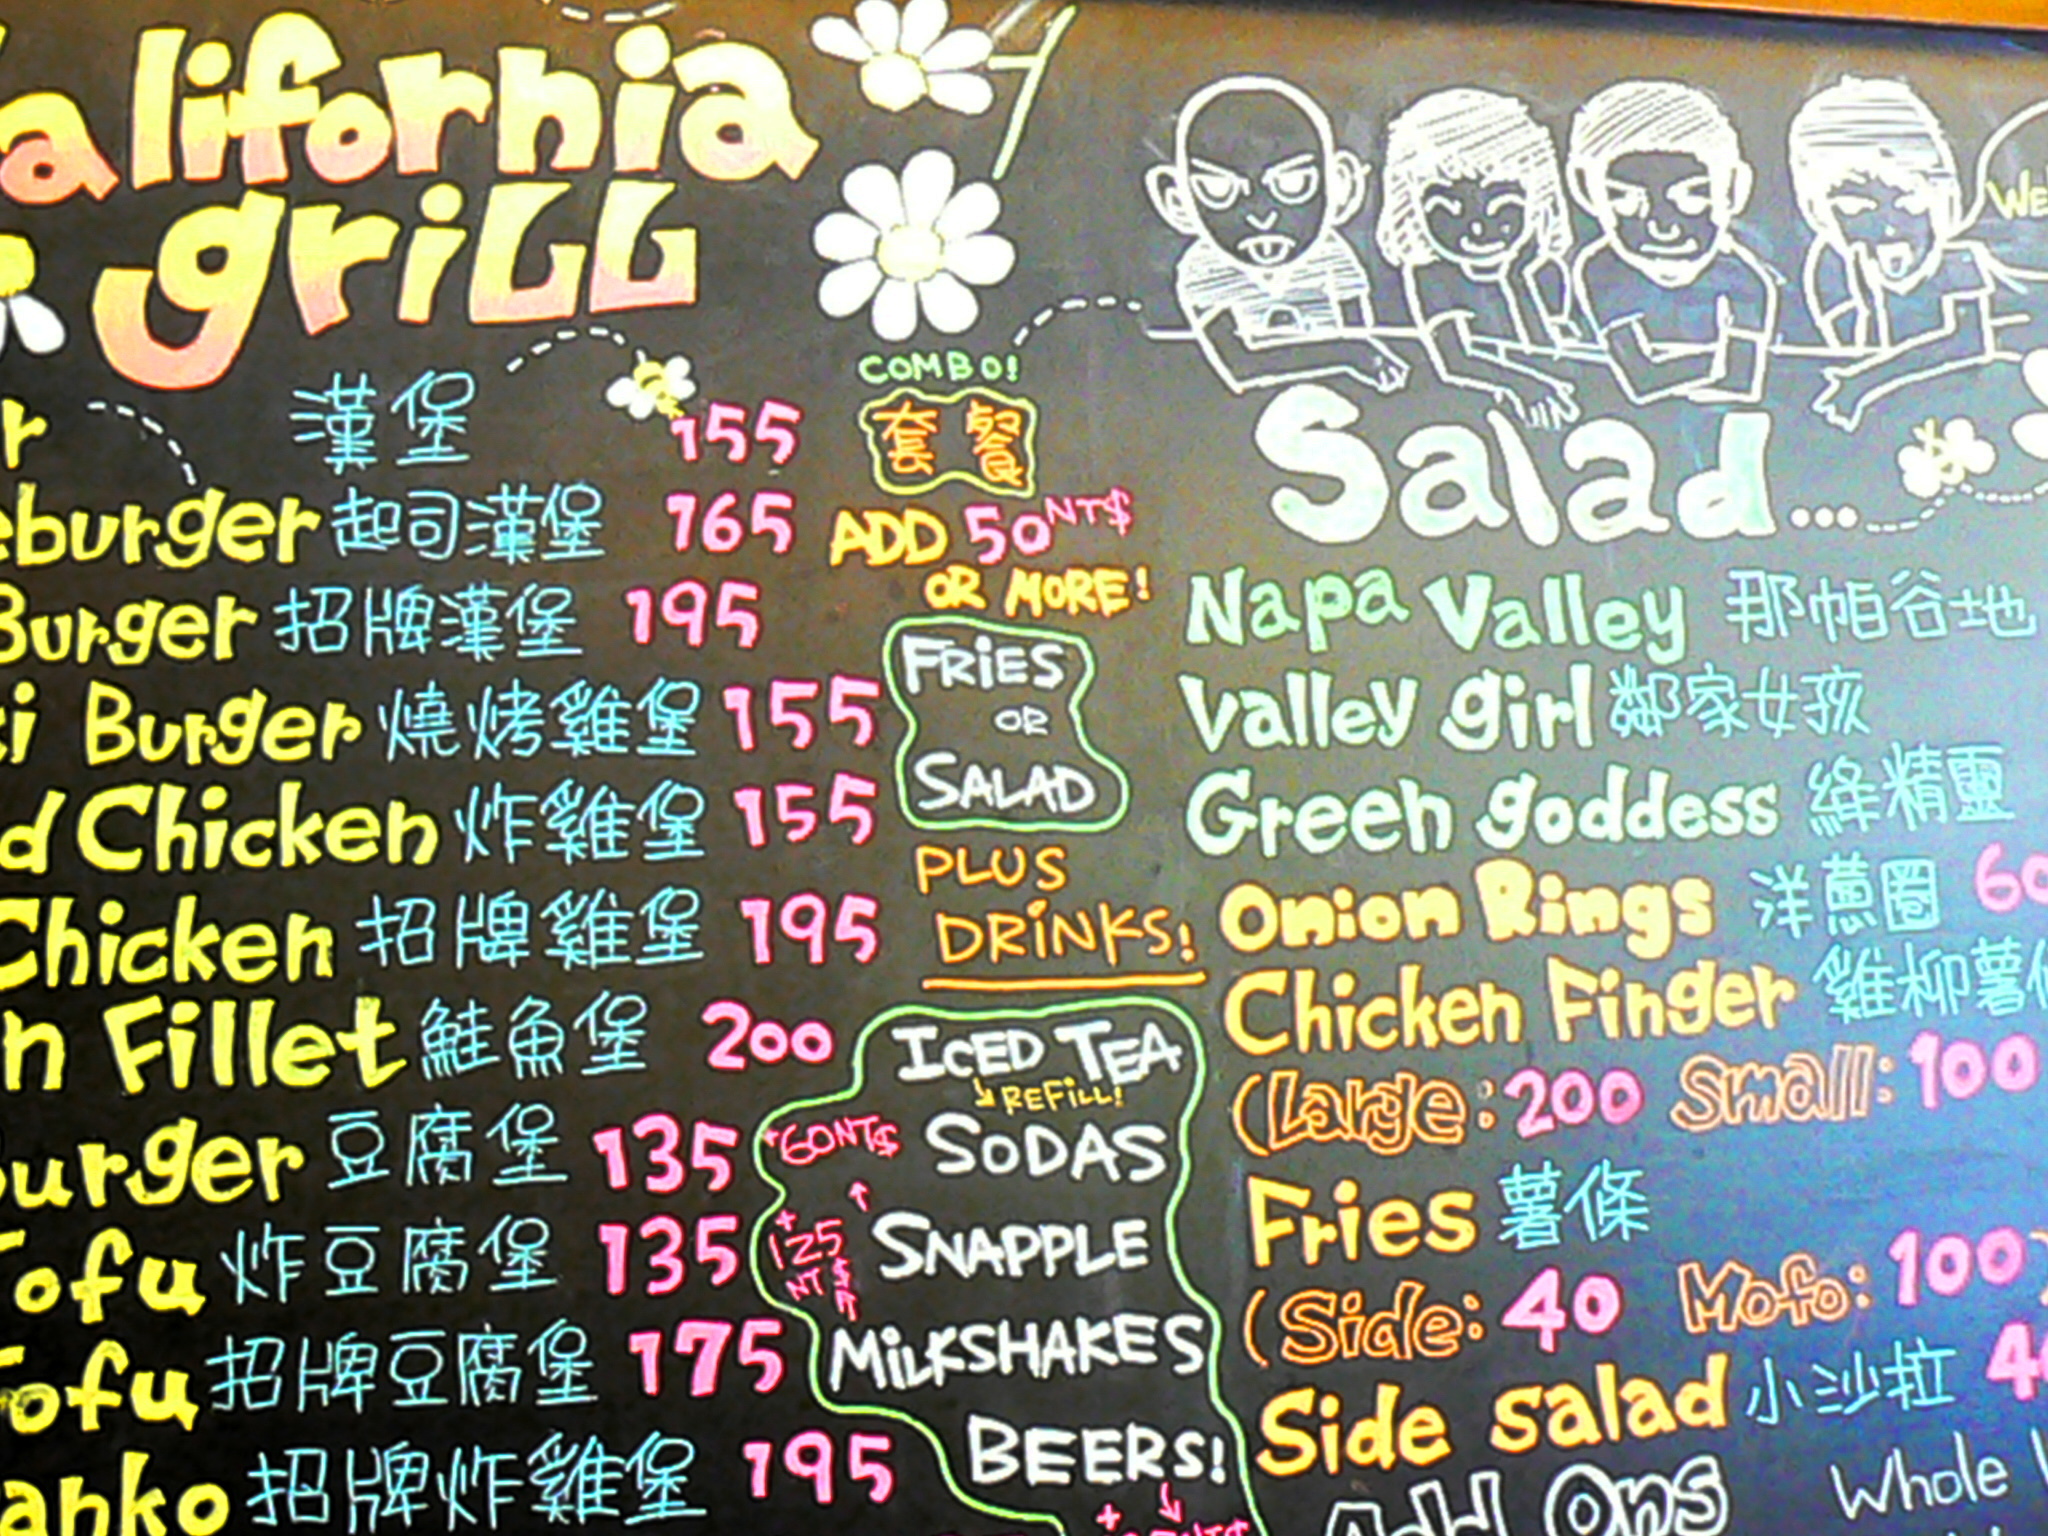 California
grill
漢堡 155
起司漢堡 165
Burger 招牌漢堡 195
Burger 燒烤雞堡 155
Chicken 炸雞堡 155
Chicken 招牌雞堡 195
Fillet 鮭魚堡 200
豆腐堡 135
Tofu 炸豆腐堡 135
Tofu 招牌豆腐堡 175
招牌炸雞堡 195
COMBO!
套餐
ADD 50NT$
OR MORE!
FRIES
OR
SALAD
PLUS
DRINKS!
ICED TEA
REFILL!
+60NT$ SODAS
+125NT$ SNAPPLE
MILKSHAKES
BEERS!
Salad...
Napa Valley 那帕谷地
Valley girl 鄰家女孩
Green goddess 綠精靈
Onion Rings 洋蔥圈
Chicken Finger 雞柳薯
(Large: 200 Small: 100
Fries 薯條
(Side: 40 Mofo: 100)
Side salad 小沙拉
Add Ons Whole